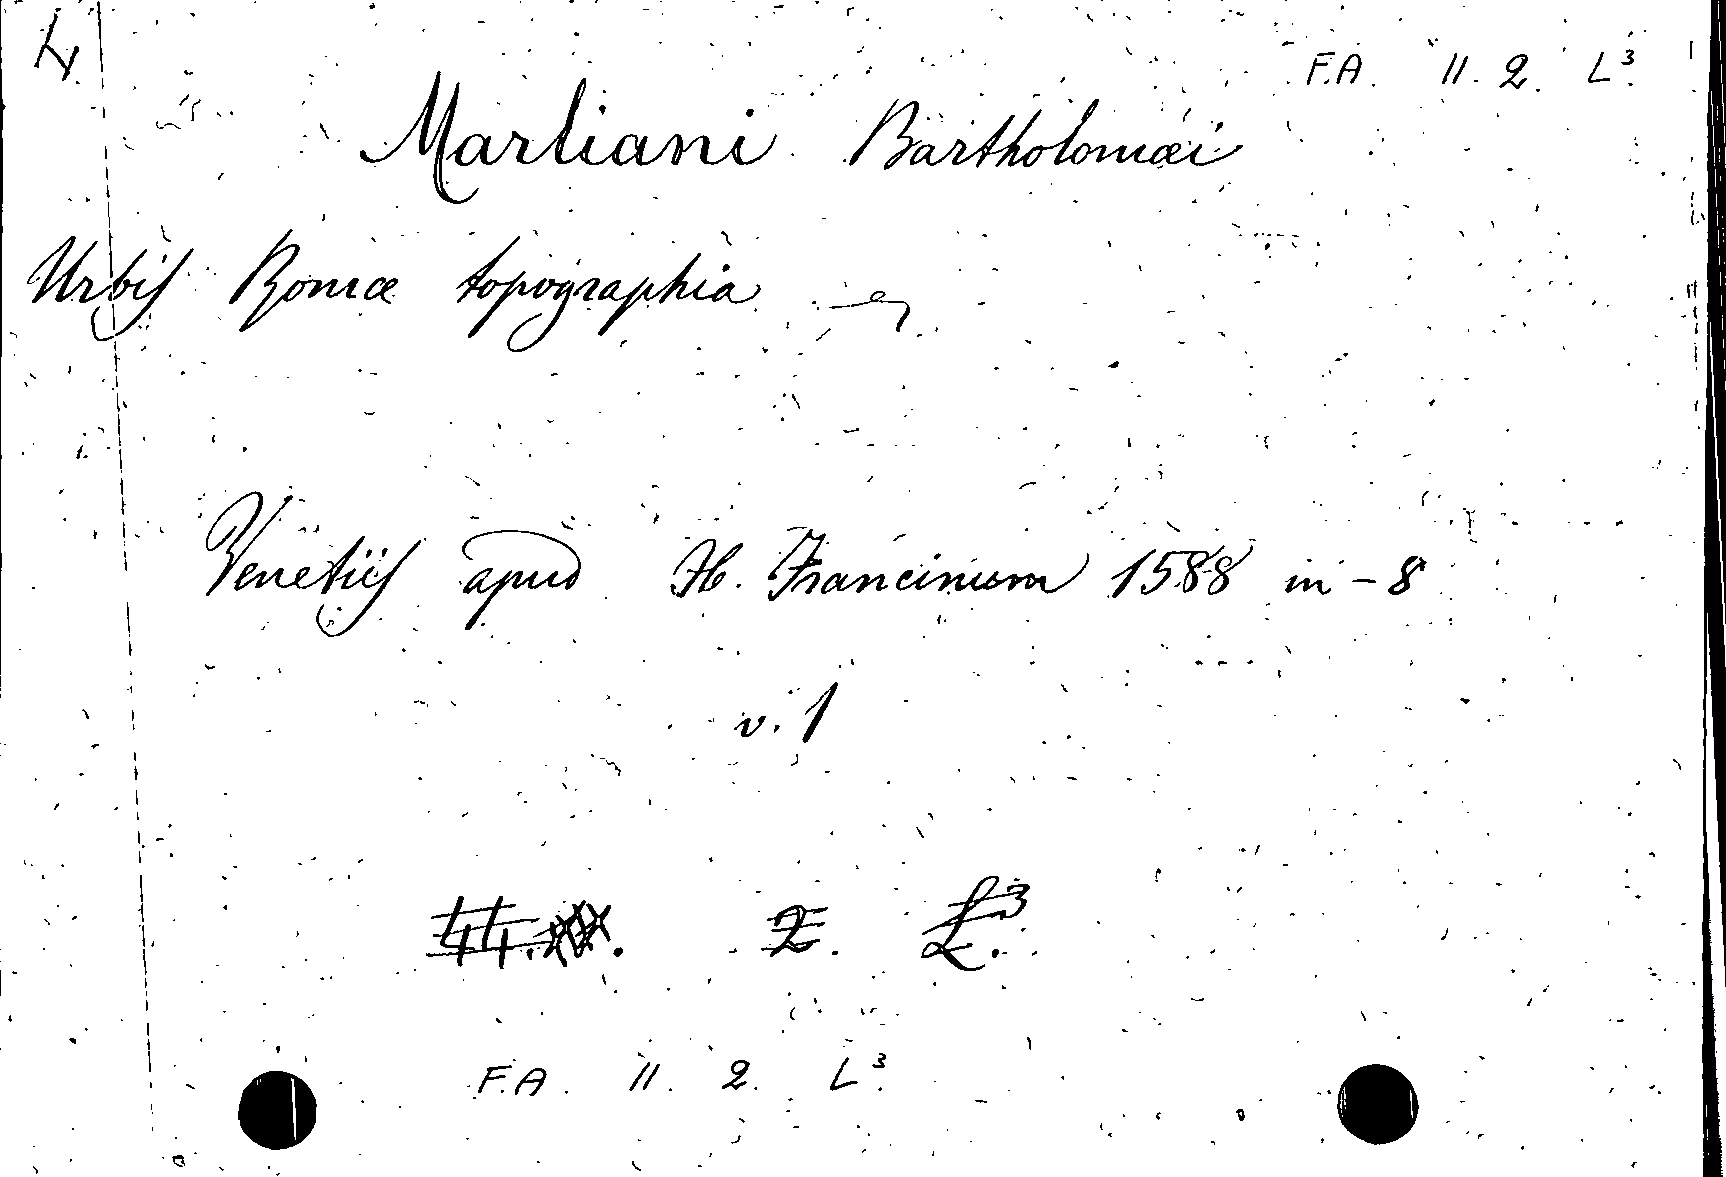 F.A. II. 2. L³.
Marliani Bartholomæi
Urbis Romæ topographia
Venetiis apud H. Francinum 1588 in-8
v. 1
2. L³.
F.A. II. 2. L³.